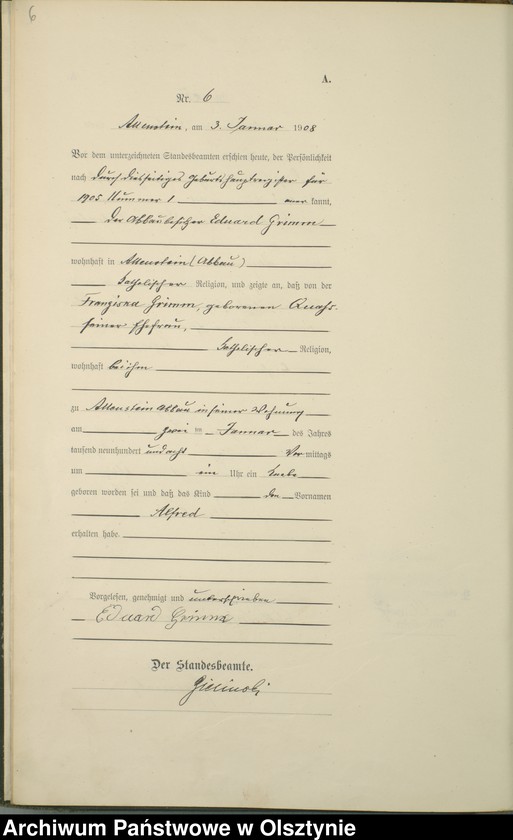 6
A.
Nr. 6
Allenstein, am 3. Januar 1908
Vor dem unterzeichneten Standesbeamten erschien heute, der Persönlichkeit
nach durch diesseitiges Geburtshauptregister für
1905 Nummer 1 aner kannt,
der Abbaubesitzer Eduard Grimm
wohnhaft in Allenstein (Abbau)
katholischer Religion, und zeigte an, daß von der
Franziska Grimm, geborenen
seiner Ehefrau,
katholischer Religion,
wohnhaft bei ihm
zu Allenstein Abbau in seiner Wohnung
am zwei ten Januar des Jahres
tausend neunhundert und acht Vor mittags
um ein Uhr ein Knabe
geboren worden sei und daß das Kind den Vornamen
Alfred
erhalten habe.
Vorgelesen, genehmigt und unterschrieben
Eduard Grimm
Der Standesbeamte.
Archiwum Państwowe w Olsztynie